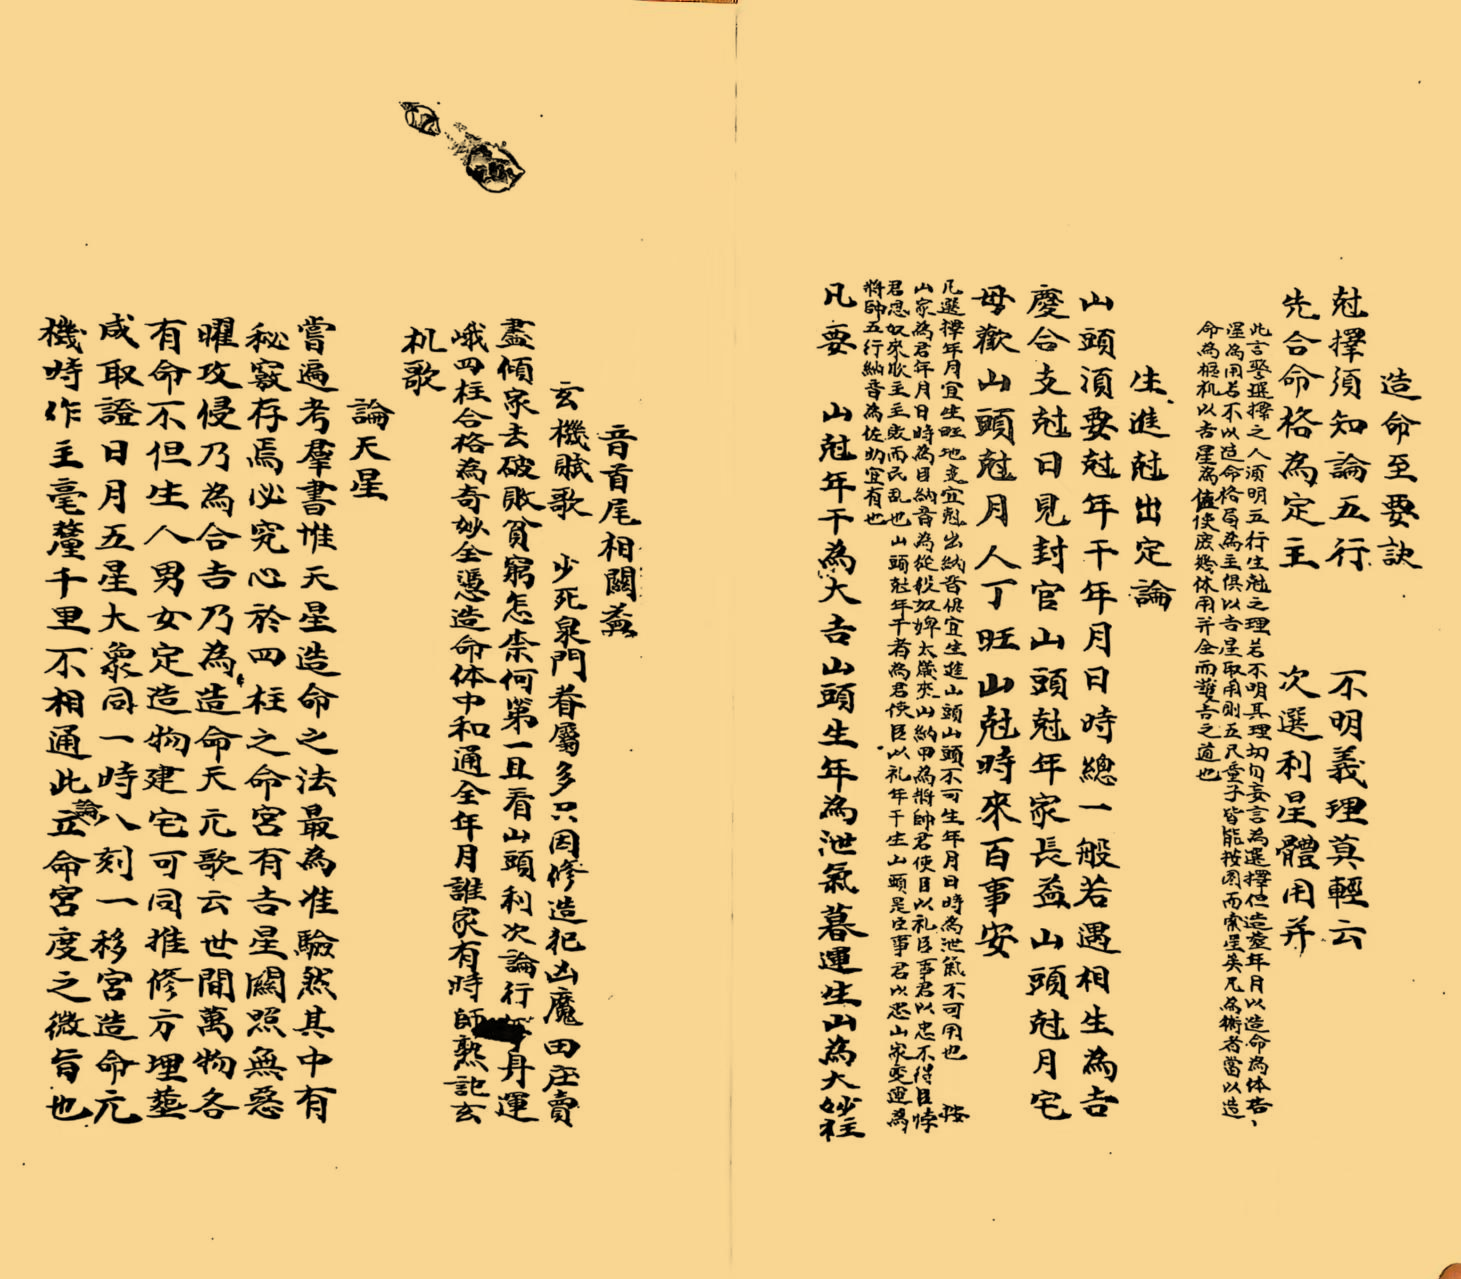 造命至要訣
尅擇須知論五行　不明義理莫輕云
先合命格為定主　次選利星體用并
此言娶選擇之人須明五行生尅之理若不明其理切勿妄言為選擇但造塟年月以造命為体吉
星為用若不以造命格局為主俱以吉星取用則五尺童子皆能按圖而索星矣凡為術者當以造
命為樞机以吉星為值使庶幾体用并全而䕶吉之道也
生進尅出定論
山頭須要尅年干年月日時總一般若遇相生為吉
慶合支尅日見封官山頭尅年家長益山頭尅月宅
母歡山頭尅月人丁旺山尅時來百事安
凡選擇年月宜生旺地支宜尅出納音俱宜生進山頭山頭不可生年月日時為泄氣不可用也　按
山家為君年月日時為臣納音為從役奴婢太歲來山納甲為將帥君使臣以礼臣事君以忠不得臣悖
君恩奴來欺主主敗而民乱也山頭尅年干者為君使臣以礼年干生山頭是臣事君以忠山家変運為
將帥五行納音為佐助宜有也
凡要　山尅年干為大吉山頭生年為泄氣暮運生山為大妙柱
音首尾相關益
玄機賦歌　少死泉門眷屬多只因修造犯凶魔田庄賣
盡傾家去破敗貧窮怎柰何第一且看山頭利次論行年身運
峨四柱合格為奇妙全憑造命体中和通全年月誰家有時師熟記玄
机歌
論天星
嘗遍考羣書惟天星造命之法最為准驗然其中有
秘竅存焉必究心於四柱之命宮有吉星關照無惡
曜攻侵乃為合吉乃為造命天元歌云世間萬物各
有命不但生人男女定造物建宅可同推修方埋塟
咸取證日月五星大象同一時八刻一移宮造命元
機時作主毫釐千里不相通此論立命宮度之微旨也